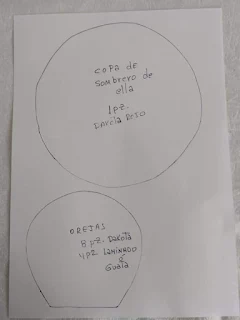 COPA de
SOMBRERO de
ella
1 pz.
DAKOTA ROJO
OREJAS
8 pz. Dakota
4 pz LAMINADO
ó
Guata